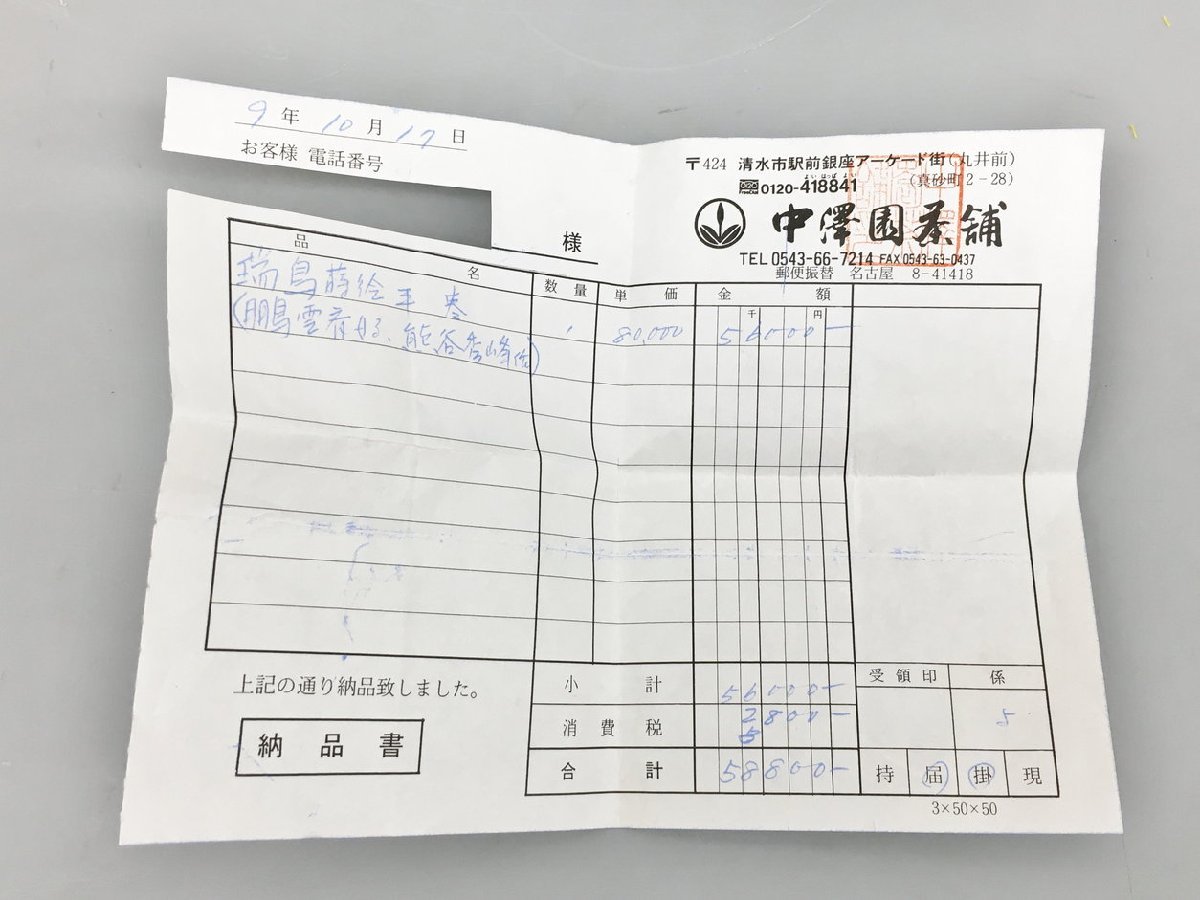 9年10月17日
お客様 電話番号
様
〒424 清水市駅前銀座アーケード街(丸井前)
(真砂町2-28)
よい はっぱ よい
0120-418841
中澤園茶舗
TEL 0543-66-7214 FAX 0543-63-0437
郵便振替 名古屋 8-41418
品名 数量 単価 金額
千 円
瑞鳥蒔絵平棗 1 80,000 56000-
(鵬雲斎好 熊谷峰作)
上記の通り納品致しました。
納品書
小計 56000-
消費税 2800-
合計 58800-
受領印 係
持 届 掛 現
3×50×50